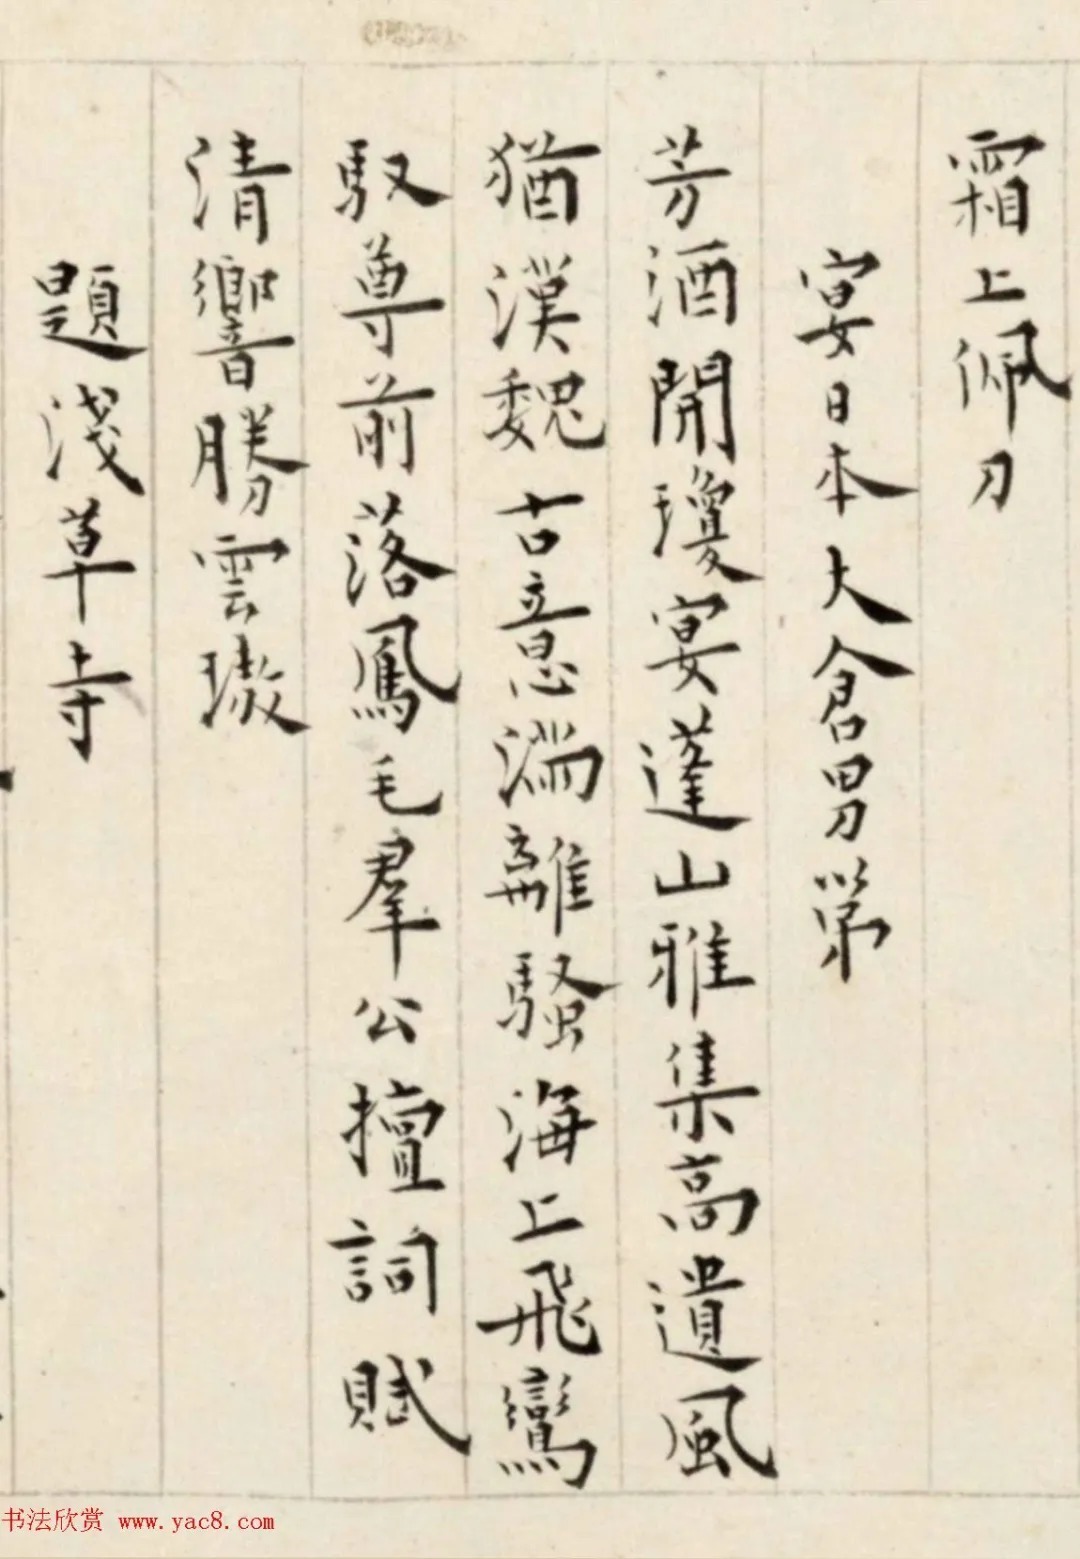 霜上佩刀
宴日本大倉男第
芳酒開瓊宴蓬山雅集高遺風
猶漢魏古意滿離騷海上飛鸞
馭尊前落鳳毛羣公擅詞賦
清響勝雲璈
題淺草寺
书法欣赏 www.yac8.com